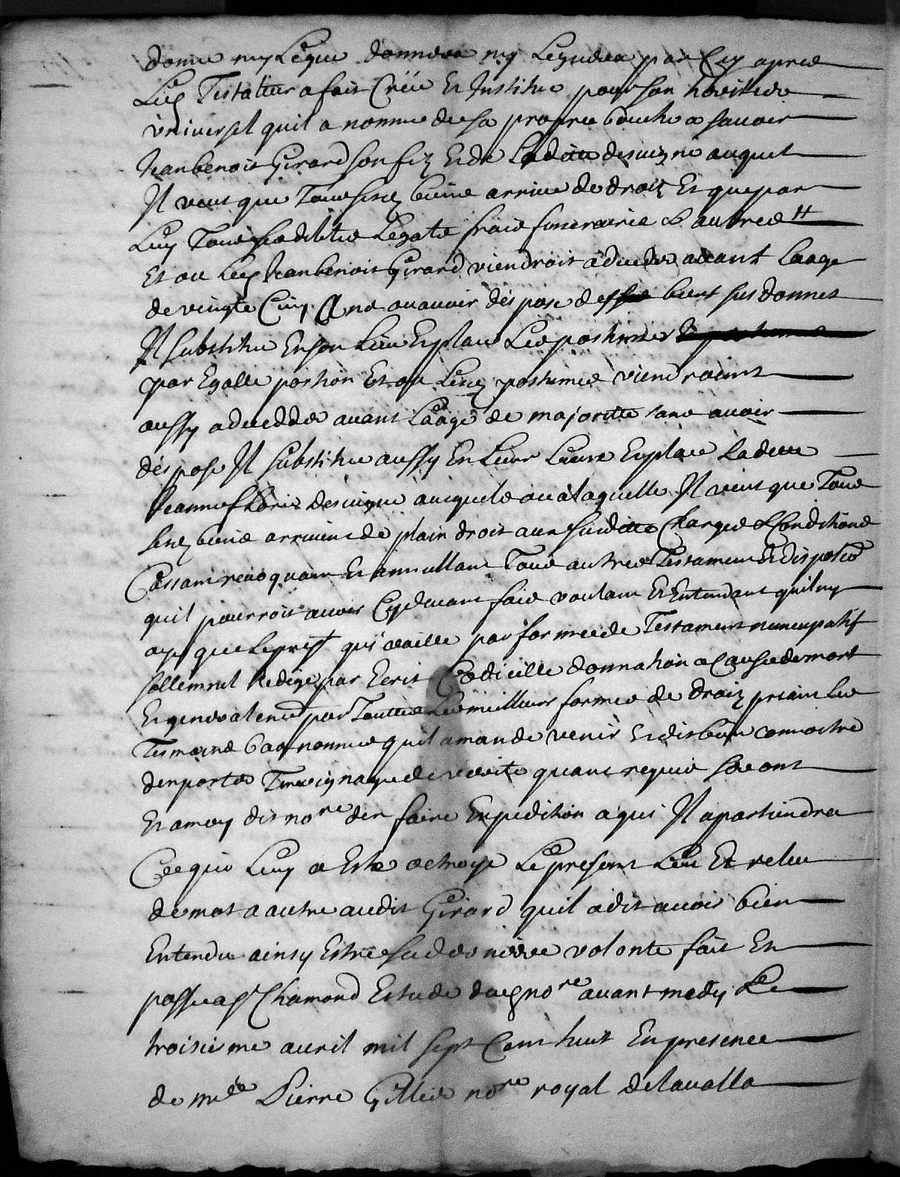 donné ny legué donnera ny leguera par cy apres
Led Testateur a fait Créé et Institué pour son heritier
universel quil a nommé de sa propre bouche a savoir
Jean benoit Girard son filz et de Laditte desvigne auquel
Il veut que Tous ses biens arrive de droit Et que par
Luy Tous ses debtes Legats frais funeraires & autres
Et ou Led Jean benoit Girard viendroit a deceder avant Laage
de vingte Cinq Ans ou avoir disposé de ses biens sus donnes
Il Substitue En son Lieu Et place Les postumes
par Egalle portion Et ou Lesd postumes viendroient
aussy a deceder avant Laage de majoritté sans avoir
disposé Il Substitue aussy En Leurs Lieux Et place Laditte
Jeanne desvigne auxquels ou a laquelle Il veut que Tous
sesd biens arrivent de plain droit aux suditte Charges & Conditions
Cassant revoquant Et annullant Tous autres Testament Et disposion
quil pourroit avoir Cy devant fait voulant Et Entendant quil ny
aye que Le prest qui vaille par forme de Testament nuncupatif
sollemnel Redigé par Ecrit Codicille donnation a Cause de mort
Et generalement par Toutte Les meilleurs formes de droit priant Les
Tesmoins bas nommés quil a mandé venir Et dit bien connoitre
den porter Tmoignage de verité quant requis seront
Et a moy dit no.re den faire Expedition a qui Il apartiendra
Ce que Luy a Esté octroyé Le present Leu Et releu
de mot a autre audit Girard quil a dit avoir bien
Entendu ainsy Estre sa derniere volonté fait Et
passé a St Chamond Estude dud no.re avant midy Le
troisieme avril mil sept Cent huit En presence
de me Pierre Gillier no.re royal de Lavalla